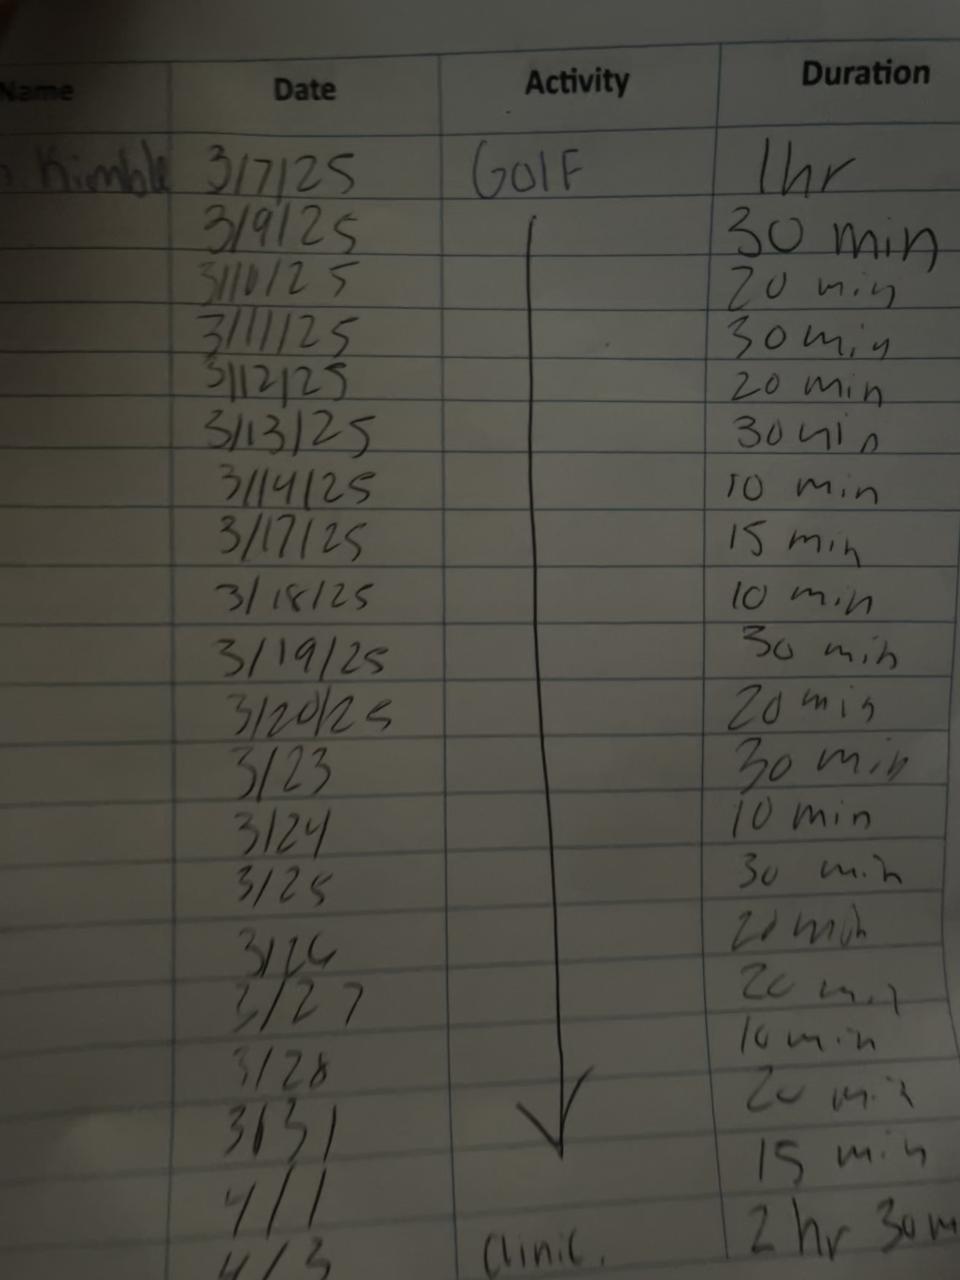 Name Date Activity Duration
Kimble 3/7/25 GOlF 1hr
3/9/25 30 min
3/10/25 20 min
3/11/25 30 min
3/12/25 20 min
3/13/25 30 min
3/14/25 10 min
3/17/25 15 min
3/18/25 10 min
3/19/25 30 min
3/20/25 20 min
3/23 30 min
3/24 10 min
3/25 30 min
3/26 20 min
3/27 20 min
3/28 10 min
3/31 20 min
4/1 15 min
4/3 Clinic. 2 hr 30 m